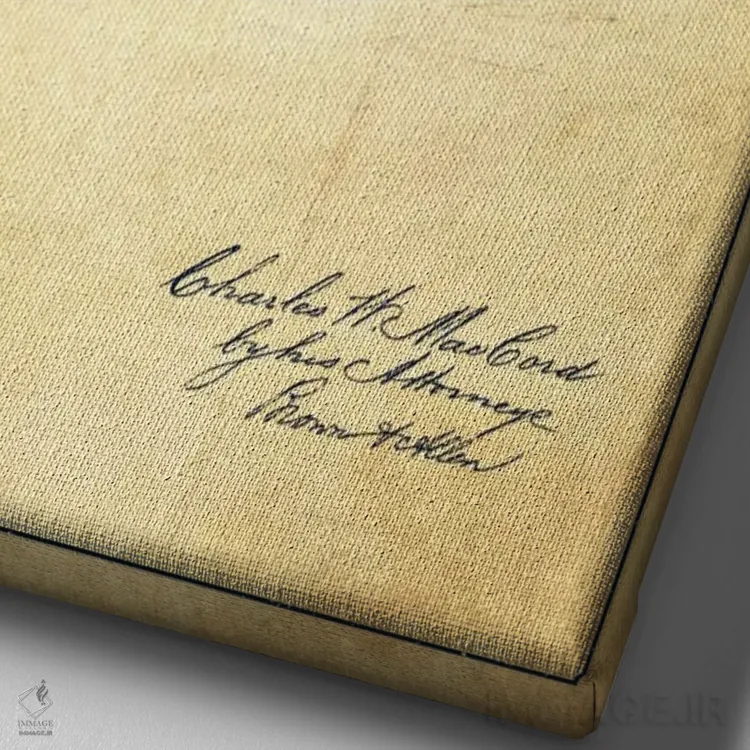 Charles W. MacCord
by his Attorneys
Brown & Allen
IMMAGE
IMMAGE.IR
IMMAGE.IR